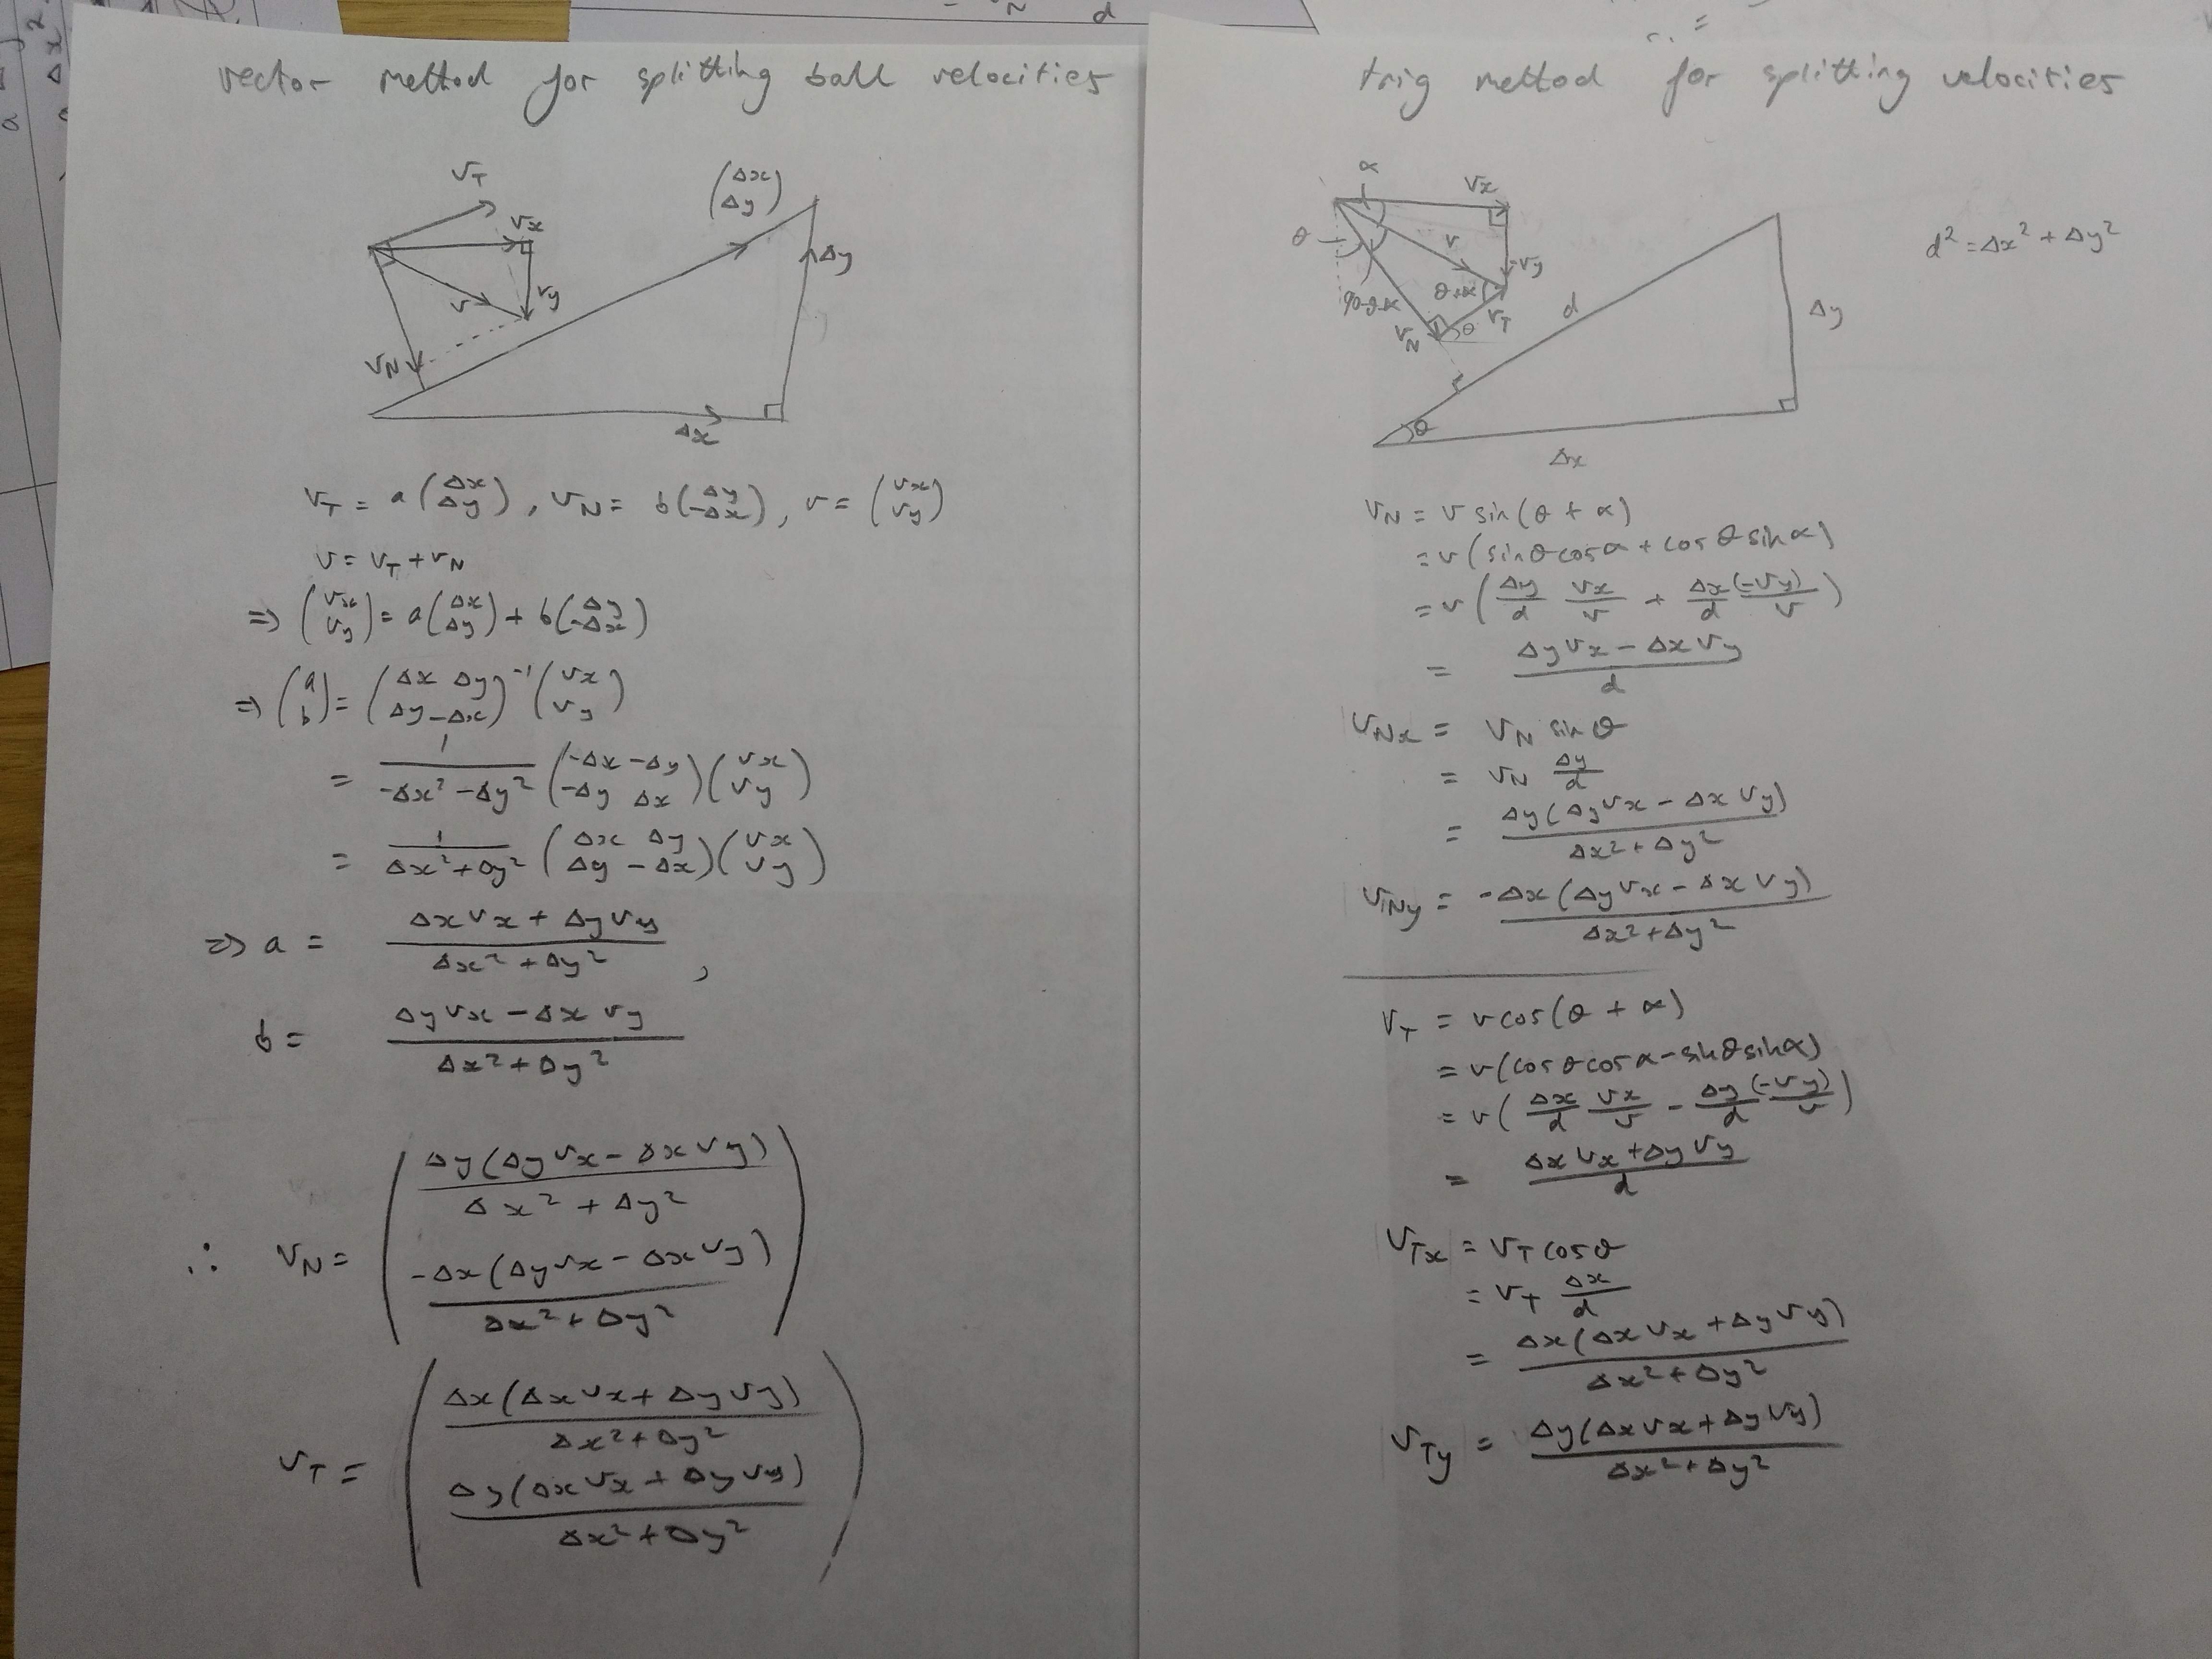 vector method for splitting ball velocities
v_T
(Δx Δy)
v_x
Δy
v
v_y
v_N
Δx
v_T = a(Δx Δy), v_N = b(Δy -Δx), v = (v_x v_y)
v = v_T + v_N
⇒ (v_x v_y) = a(Δx Δy) + b(Δy -Δx)
⇒ (a b) = (Δx Δy Δy -Δx)^-1 (v_x v_y)
= 1/(-Δx² -Δy²) (-Δx -Δy -Δy Δx)(v_x v_y)
= 1/(Δx² + Δy²) (Δx Δy Δy -Δx)(v_x v_y)
⇒ a = (Δx v_x + Δy v_y)/(Δx² + Δy²),
b = (Δy v_x - Δx v_y)/(Δx² + Δy²)
∴ v_N = (Δy(Δy v_x - Δx v_y)/(Δx² + Δy²)
-Δx(Δy v_x - Δx v_y)/(Δx² + Δy²))
v_T = (Δx(Δx v_x + Δy v_y)/(Δx² + Δy²)
Δy(Δx v_x + Δy v_y)/(Δx² + Δy²))
trig method for splitting velocities
α
v_x
θ
v
-v_y
d² = Δx² + Δy²
90-θ-α
θ+α
v_T
d
Δy
v_N
θ
θ
Δx
v_N = v sin(θ + α)
= v(sinθcosα + cosθsinα)
= v(Δy/d v_x/v + Δx/d (-v_y)/v)
= (Δy v_x - Δx v_y)/d
v_Nx = v_N sinθ
= v_N Δy/d
= Δy(Δy v_x - Δx v_y)/(Δx² + Δy²)
v_Ny = -Δx(Δy v_x - Δx v_y)/(Δx² + Δy²)
v_T = v cos(θ + α)
= v(cosθcosα - sinθsinα)
= v(Δx/d v_x/v - Δy/d (-v_y)/v)
= (Δx v_x + Δy v_y)/d
v_Tx = v_T cosθ
= v_T Δx/d
= Δx(Δx v_x + Δy v_y)/(Δx² + Δy²)
v_Ty = Δy(Δx v_x + Δy v_y)/(Δx² + Δy²)